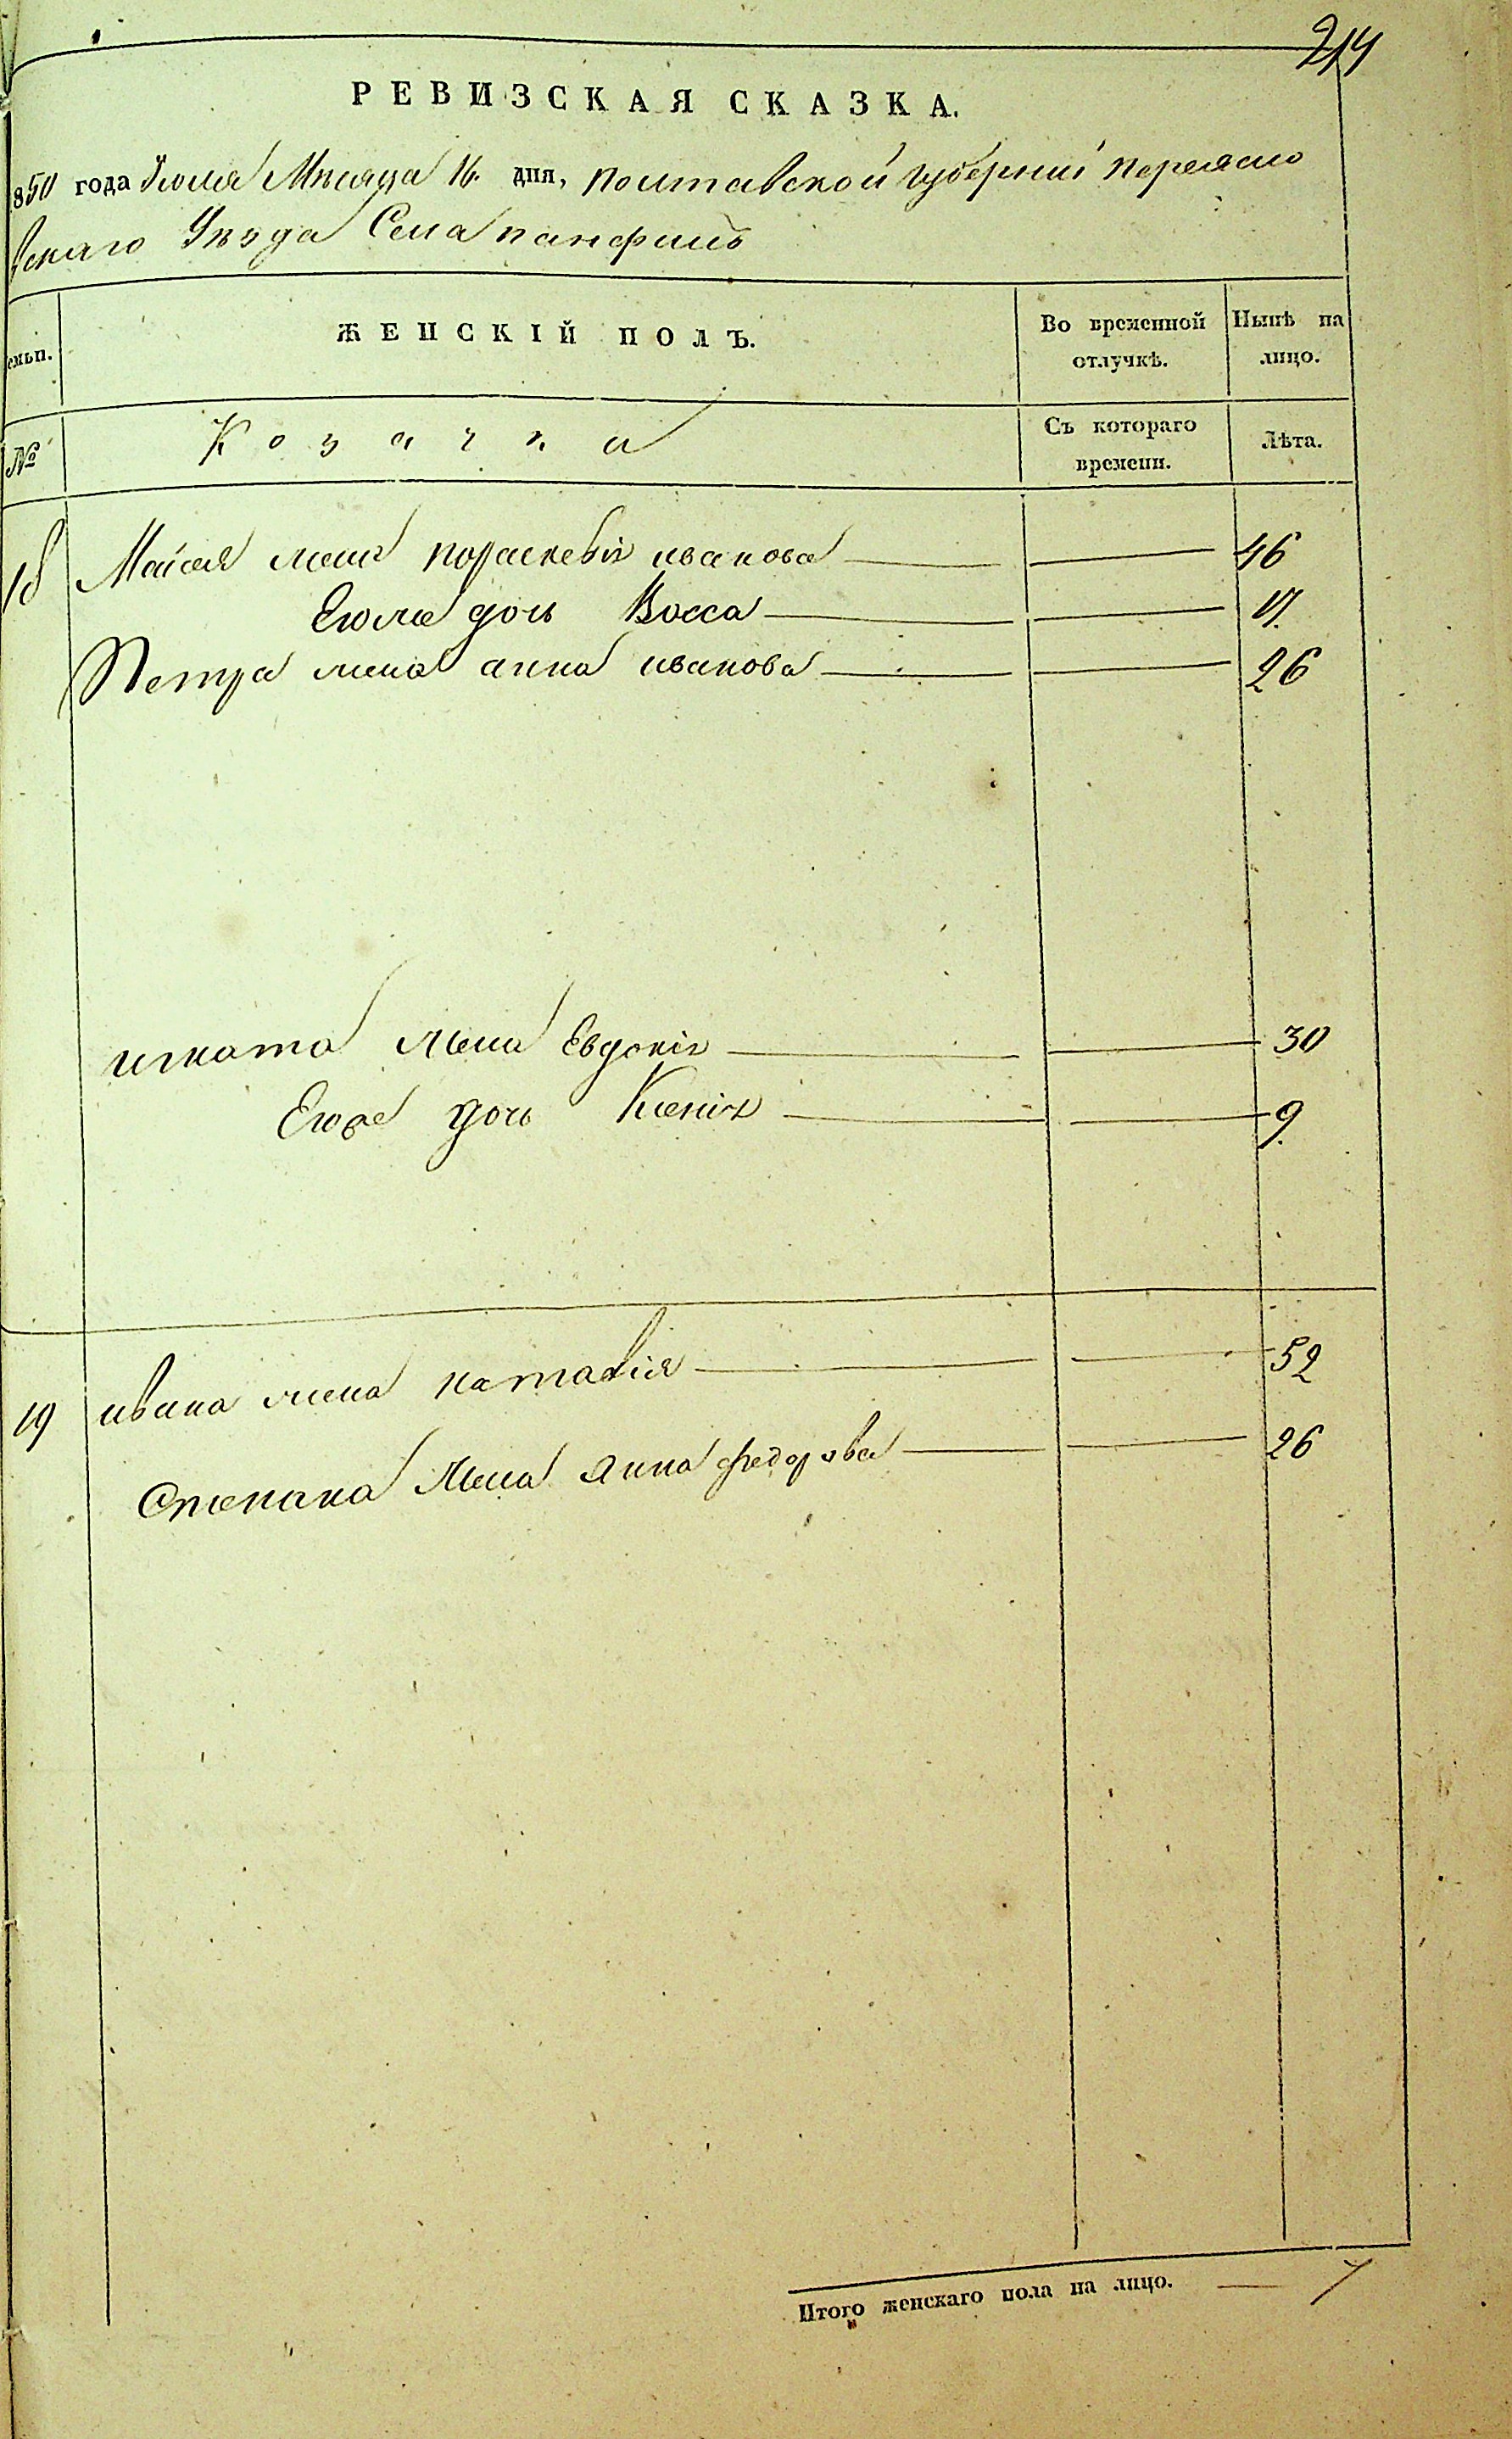 214
РЕВИЗСКАЯ СКАЗКА.
850 года Июля Мѣсяца 16 дня, полтавской губерніи переясло
вскаго Уѣзда Села панфилъ
емьи. ЖЕНСКІЙ ПОЛЪ. Во временной отлучкѣ. Нынѣ на лицо.
№ Козачки Съ котораго времени. Лѣта.
18 жена параскевія иванова 46
дочь Васса 17.
Петра жена анна иванова 26
игната Жена Евдокія 30
дочь Ксенія 9.
19 ивана жена наталія 52
Степана Жена Анна федорова 26
Итого женскаго пола на лицо. 7